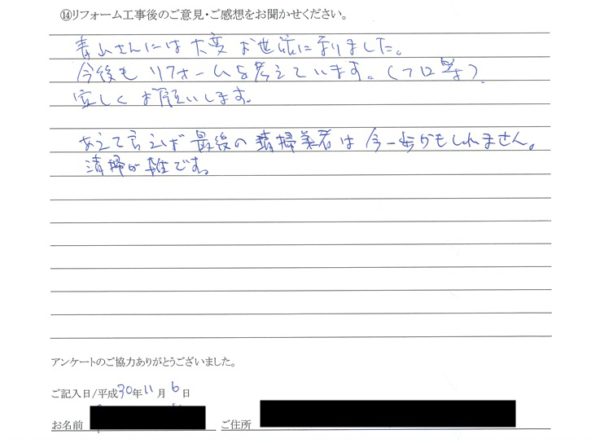 ⑭リフォーム工事後のご意見・ご感想をお聞かせください。
青山さんには大変お世話になりました。
今後もリフォームを考えています。(フロ等)
宜しくお願いします。
あえて言えば最後の清掃業者は今一歩かもしれません。
清掃が雑です。
アンケートのご協力ありがとうございました。
ご記入日/平成30年11月6日
お名前 ご住所